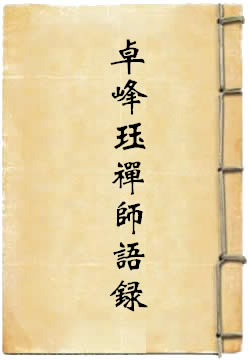 卓峰珏禪師語錄